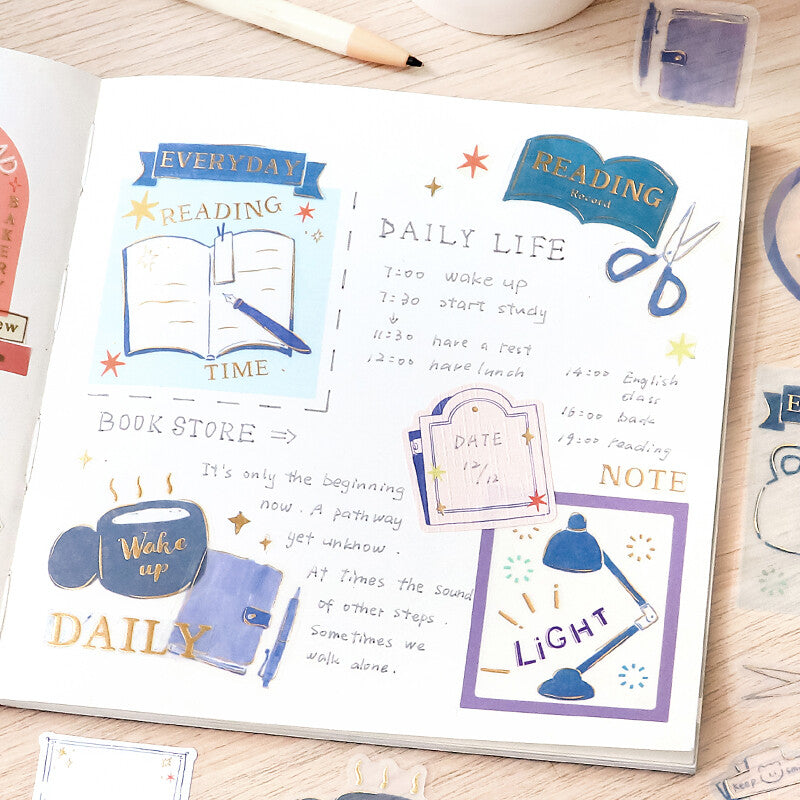 AD
BAKERY
ew
EVERYDAY
READING
TIME
READING
Record
DAILY LIFE
7:00 wake up
7:30 start study
11:30 have a rest
12:00 have lunch
14:00 English
class
16:00 back
19:00 reading
BOOK STORE ⇒
It's only the beginning
now. A pathway
yet unknow.
At times the sound
of other steps.
Sometimes we
walk alone.
DATE
12/12
NOTE
LiGHT
Wake
up
DAILY
E
keep